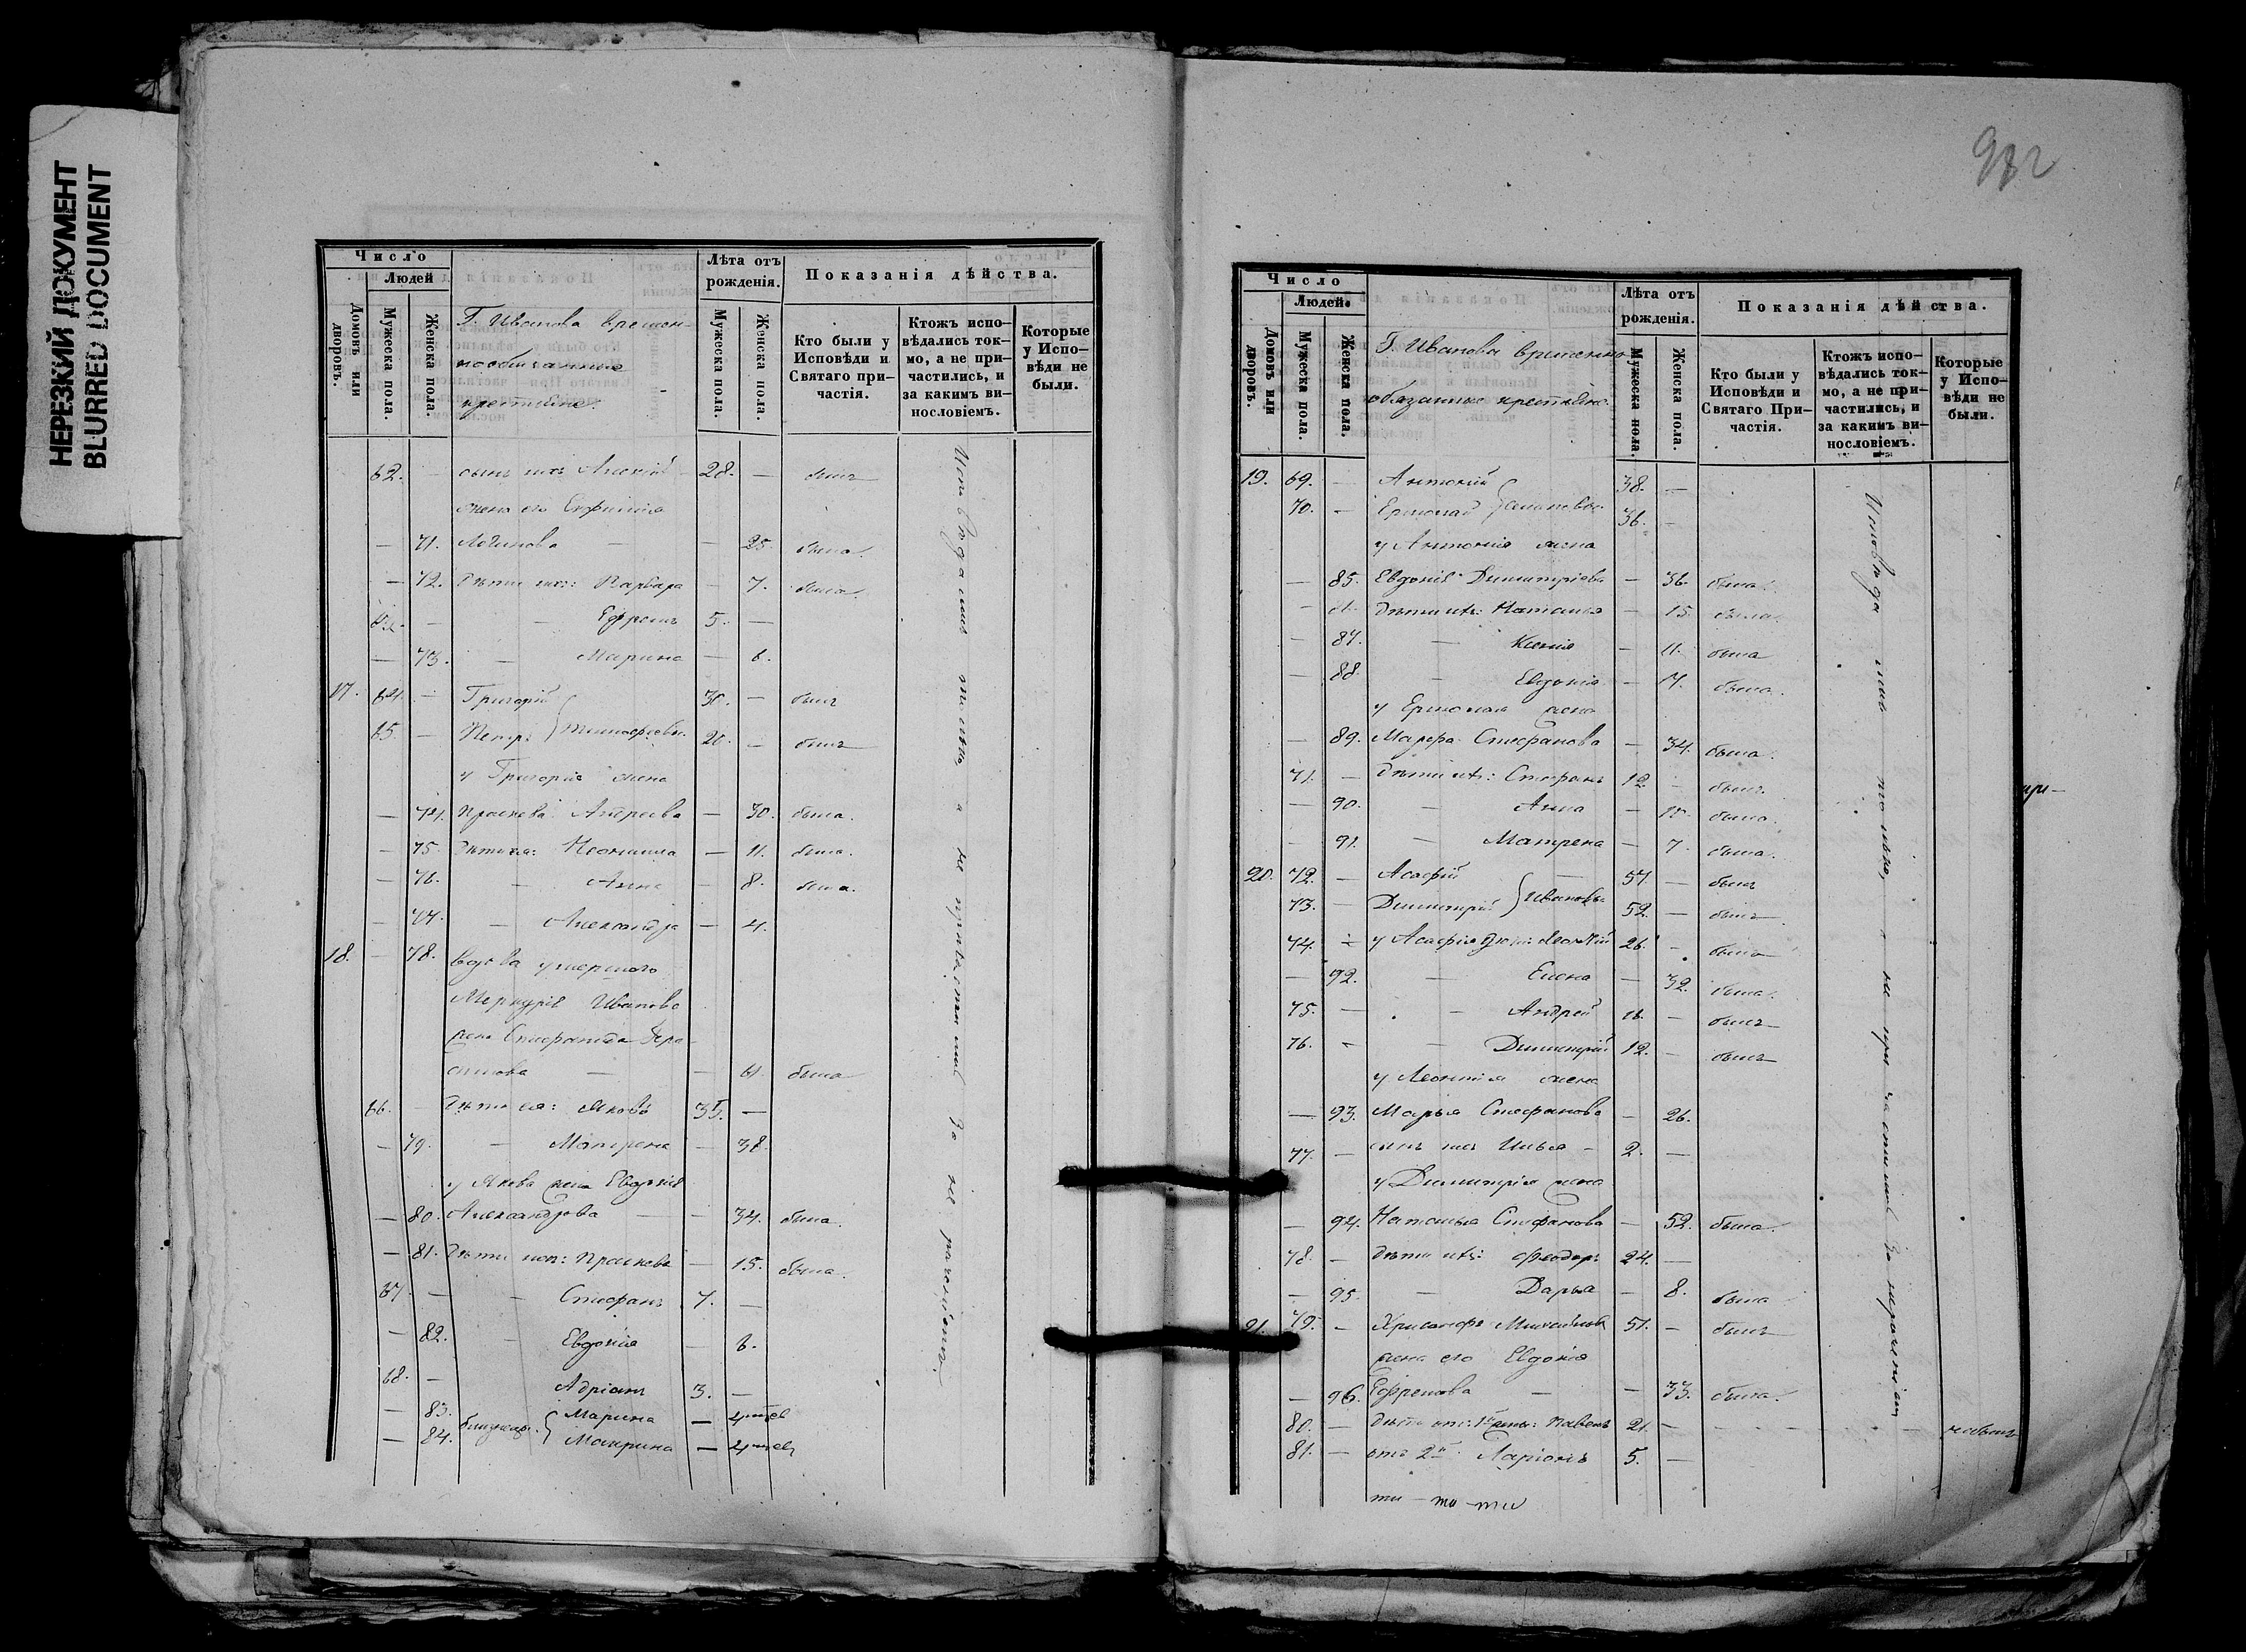 НЕРЕЗКИЙ ДОКУМЕНТ
BLURRED DOCUMENT
Число
Людей
Домовъ или дворовъ.
Мужеска пола.
Женска пола.
Г. Иванова времен-
нообязанные
крестьяне.
Лѣта отъ рожденія.
Мужеска пола.
Женска пола.
Показанія дѣйства.
Кто были у Исповѣди и Святаго при-частія.
Ктожъ испо-вѣдались ток-мо, а не при-частились, и за какимъ ви-нословіемъ.
Которые у Испо-вѣди не были.
62. — сынъ ихъ Алексій 28. — былъ
жена его Евфимія
— 71. Логинова — — 25. была.
— 72. дѣти ихъ: Варвара — 7. была.
63. — — Ефремъ 5. —
— 73. — Марина — 6.
17. 64. — Григорій 30. — былъ
65. — Петръ } Тимофеевы 20. — былъ
у Григорія жена
— 74. Праскева Андреева — 30. была.
— 75. дѣти ея: Неонилла — 11. была.
— 76. — Анна — 8. была.
— 77. — Александра — 4.
18. — 78. Вдова умершаго
Меркурія Иванова
жена Стефанида Гера-
симова — — 61. была
66. — Дѣти ея: Яковъ 35. —
— 79. — Матрена — 38.
у Якова жена Евдокія
— 80. Александрова — — 34. была.
— 81. Дѣти ихъ: Праскева — 15. была.
67. — — Стефанъ 7. —
— 82. — Евдокія — 6.
68. — Адріанъ 3. —
— 83. близнецы { Марина —
— 84. Макрина —
Исповѣдались только, а не причастились за нераченіемъ.
Число
Людей.
Домовъ или дворовъ.
Мужеска пола.
Женска пола.
Г. Иванова временно-
обязанные крестьяне.
Лѣта отъ рожденія.
Мужеска пола.
Женска пола.
Показанія дѣйства.
Кто были у Исповѣди и Святаго При-частія.
Ктожъ испо-вѣдались ток-мо, а не при-частились, и за какимъ ви-нословіемъ.
Которые у Испо-вѣди не были.
19. 69. — Антоній 38. —
70. — Ермолай 36. —
у Антонія жена
— 85. Евдокія Димитріева — 36. была.
дѣти ихъ: Наталья — 15. была.
— 87. — Ксенія — 11. была
— 88. — Евдокія — 7. была.
у Ермолая жена
— 89. Марфа Стефанова — 34. была.
71. — дѣти ихъ: Стефанъ 12. — былъ.
— 90. — Анна — была.
91. — Матрена — 7. была.
20. 72. — Асафій — 57. — былъ
73. — Димитрій } Ивановы 52. — былъ
74. — у Асафія дѣти: Леонтій 26. — былъ
— 92. — Елена — 32. была.
75. — — Андрей 16. — былъ
76. — — Димитрій 12. — былъ
у Леонтія жена
— 93. Марья Стефанова — 26.
77. — сынъ ихъ Илья — 2. —
у Димитрія жена
— 94. Наталья Стефанова — 52. была.
78. — дѣти ихъ: Феодоръ 24. —
— 95. — Дарья — 8. была
21. 79. — Хрисанфъ Михайловъ 51. — былъ
жена его Евдокія
— 96. Ефремова — — 33. была.
80. — Павелъ 21. — не былъ
81. — отъ 2й Ларіонъ 5. —
Исповѣдались только, а не причастились за нераченіемъ